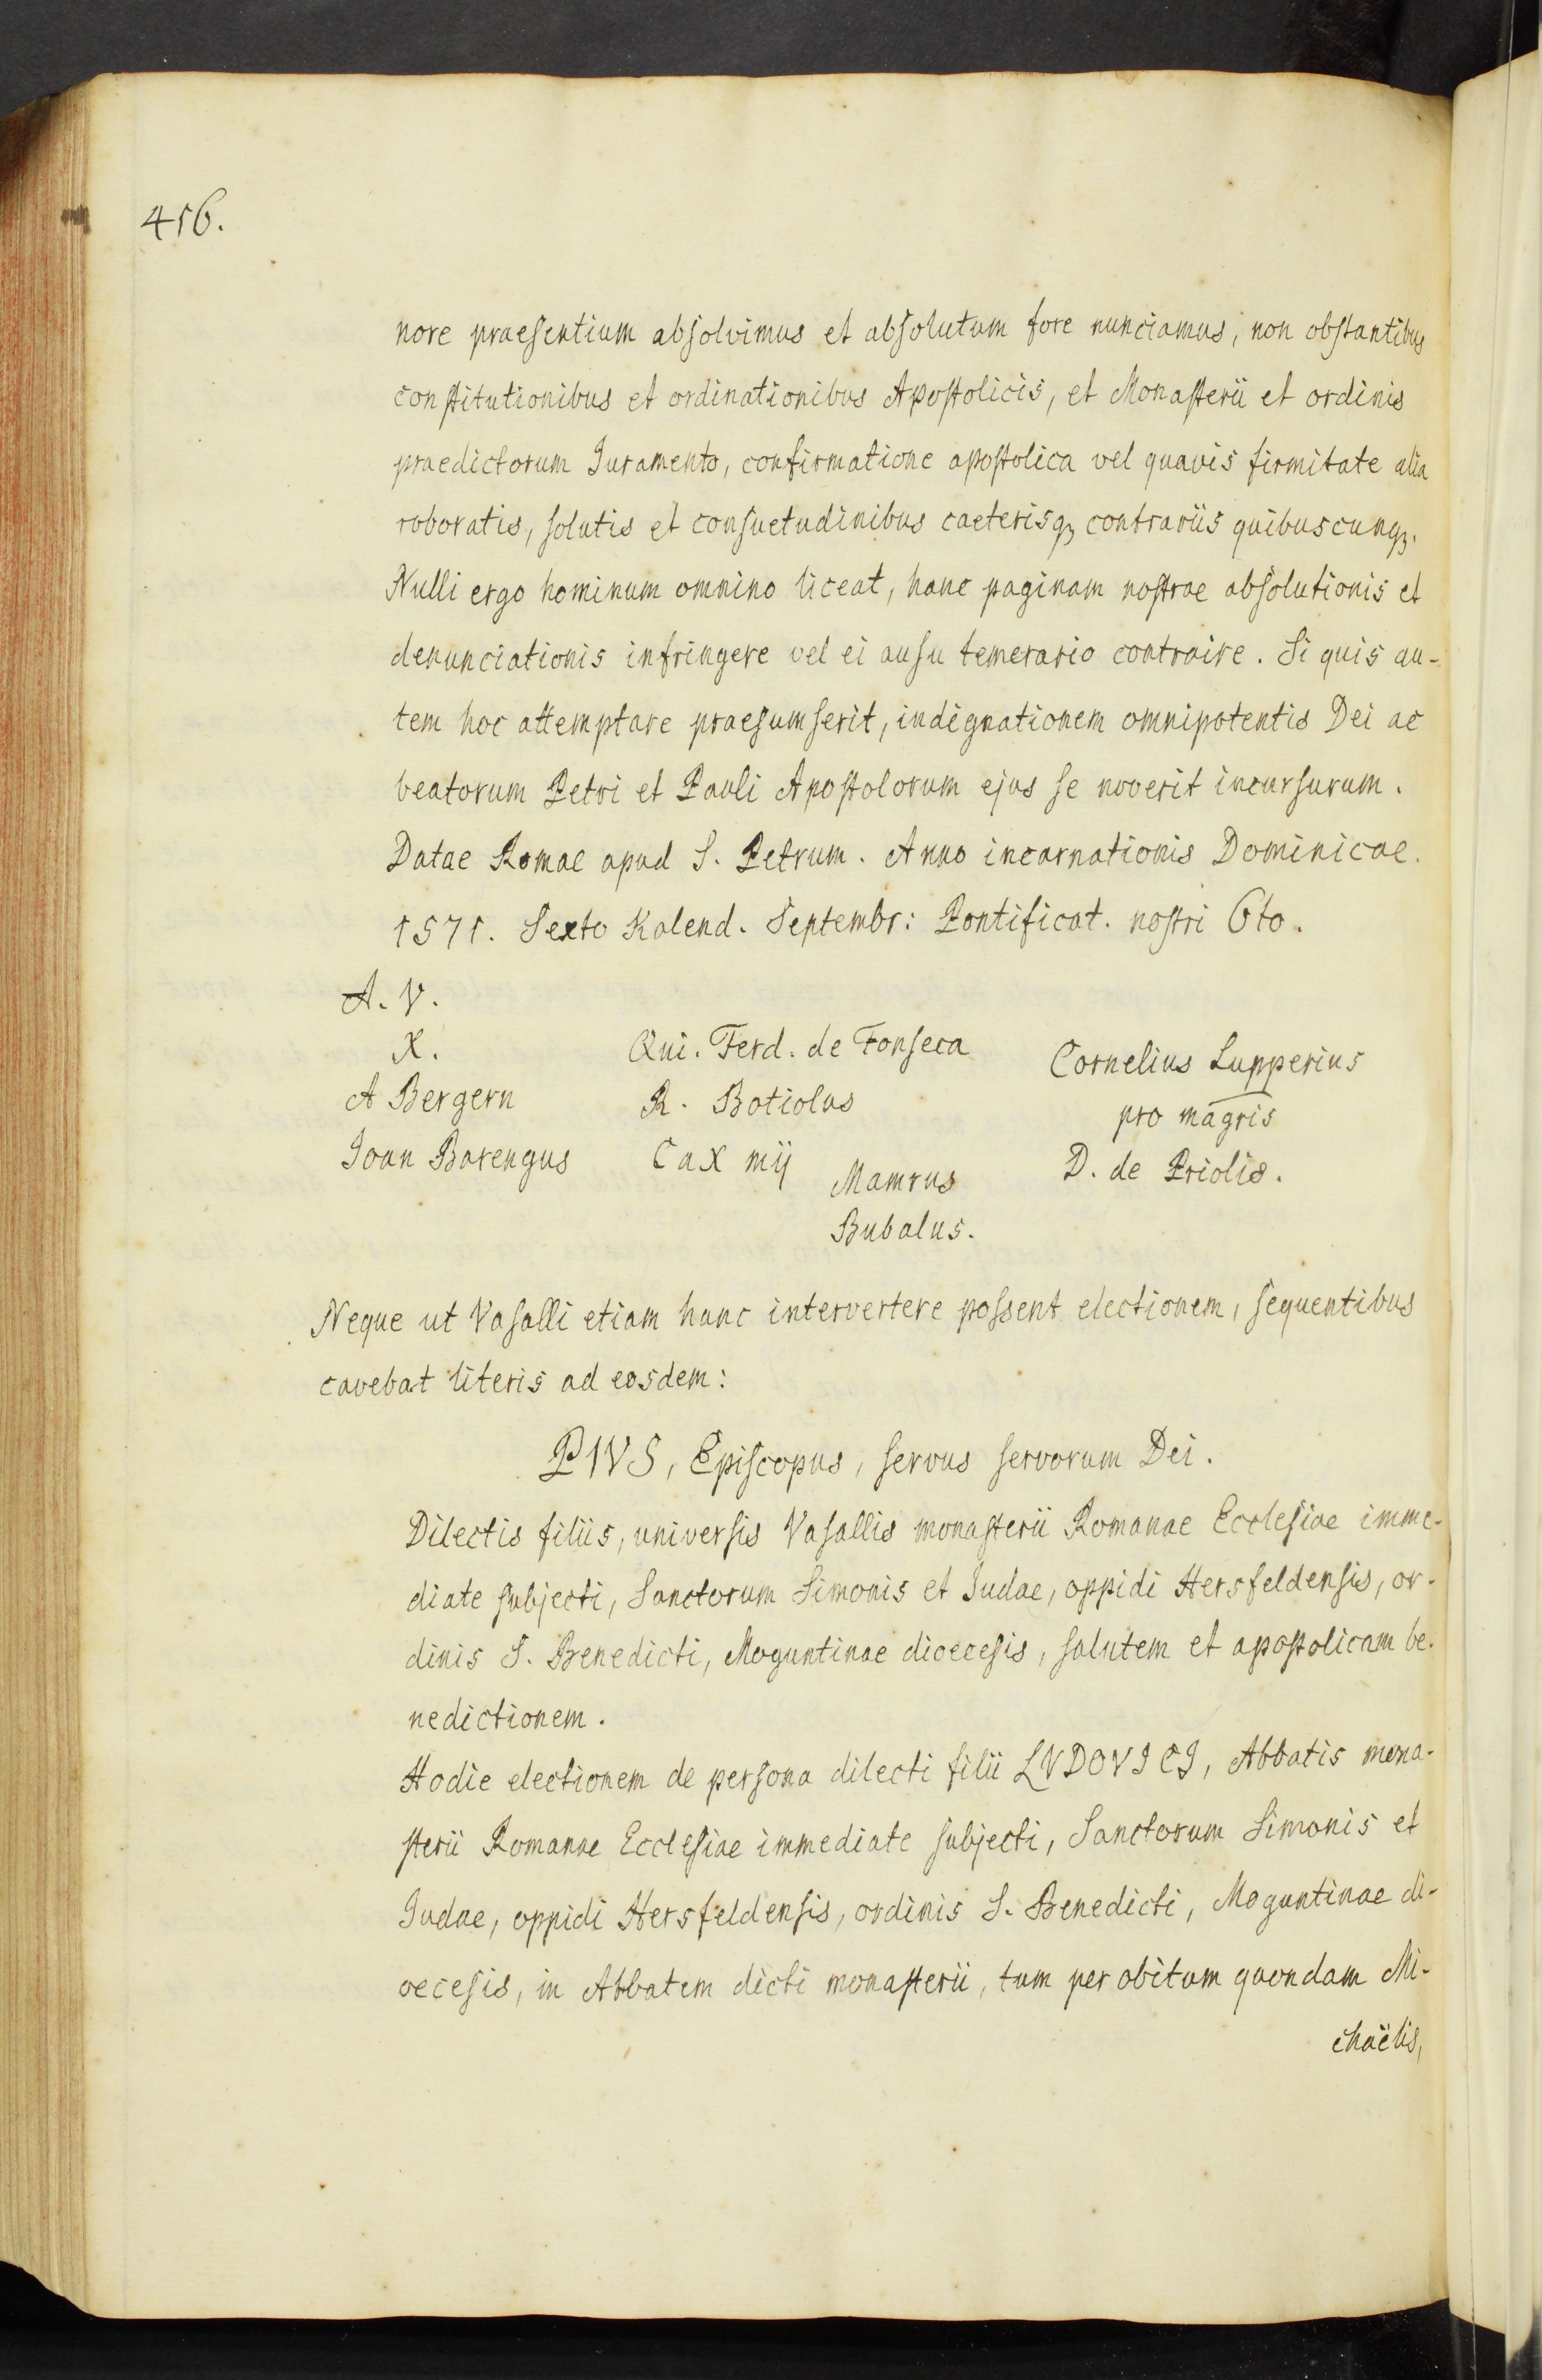 456.
nore praesentium absolvimus et absolutum fore nunciamus, non obstantibus
constitutionibus et ordinationibus Apostolicis, et Monasterii et ordinis
praedictorum Juramento, confirmatione apostolica vel quavis firmitate alia
roboratis, solutis et consuetudinibus caeterisqꝫ contrariis quibuscunqꝫ.
Nulli ergo hominum omnino liceat, hanc paginam nostrae absolutionis et
denunciationis infringere vel ei ausu temerario contraire. Si quis au-
tem hoc attemptare praesumserit, indignationem omnipotentis Dei ac
beatorum Petri et Pauli Apostolorum ejus se noverit incursurum.
Datae Romae apud S. Petrum. Anno incarnationis Dominicae.
1571. Sexto Kalend. Septembr: Pontificat. nostri 6to.
A. V.
X. Qui. Ferd. de Fonseca Cornelius Lupperius
A Bergern R. Botiolus pro magris
Joan Barengus CaX mij Mamrus D. de Priolis.
Bubalus.
Neque ut Vasalli etiam hanc intervertere possent electionem, sequentibus
cavebat literis ad eosdem:
PIVS, Episcopus, servus servorum Dei.
Dilectis filiis, universis Vasallis monasterii Romanae Ecclesiae imme-
diate subjecti, Sanctorum Simonis et Judae, oppidi Hersfeldensis, or-
dinis S. Benedicti, Moguntinae dioecesis, salutem et apostolicam be-
nedictionem.
Hodie electionem de persona dilecti filii LVDOVICI, Abbatis mona-
sterii Romanae Ecclesiae immediate subjecti, Sanctorum Simonis et
Judae, oppidi Hersfeldensis, ordinis S. Benedicti, Moguntinae di-
oecesis, in Abbatem dicti monasterii, tum per obitum quondam Mi-
chaëlis,